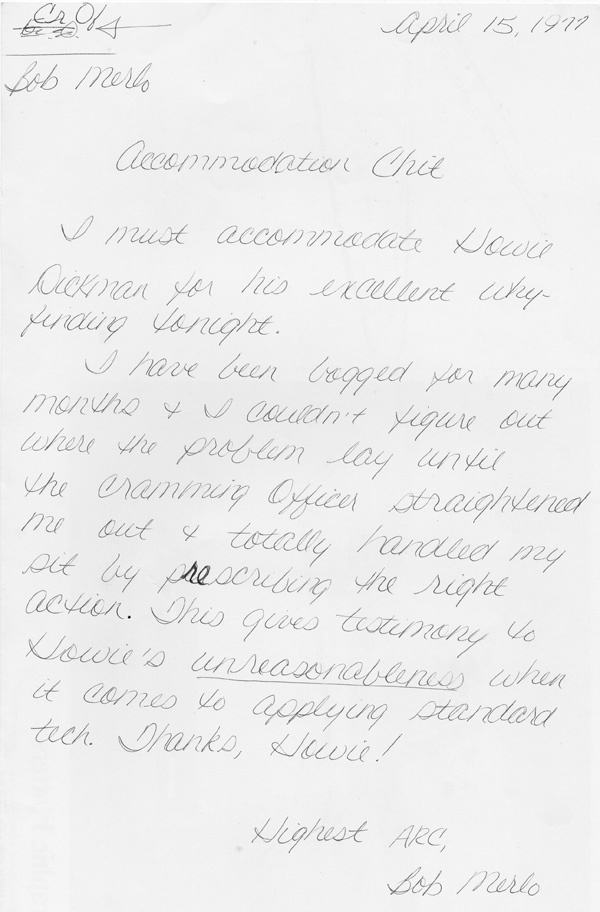 Cr Off
April 15, 1977
Bob Merlo
Accommodation Chit
I must accommodate Howie
Dickman for his excellent why-
finding tonight.
I have been bogged for many
months & I couldn't figure out
where the problem lay until
the Cramming Officer straightened
me out & totally handled my
sit by prescribing the right
action. This gives testimony to
Howie's unreasonableness when
it comes to applying standard
tech. Thanks, Howie!
Highest ARC,
Bob Merlo